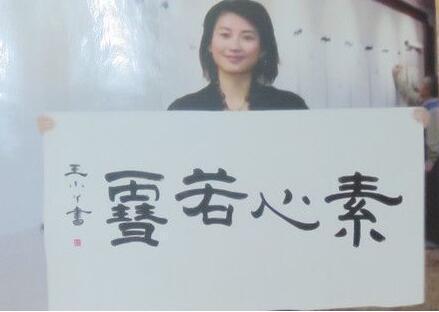 素心若雪
王小丫書